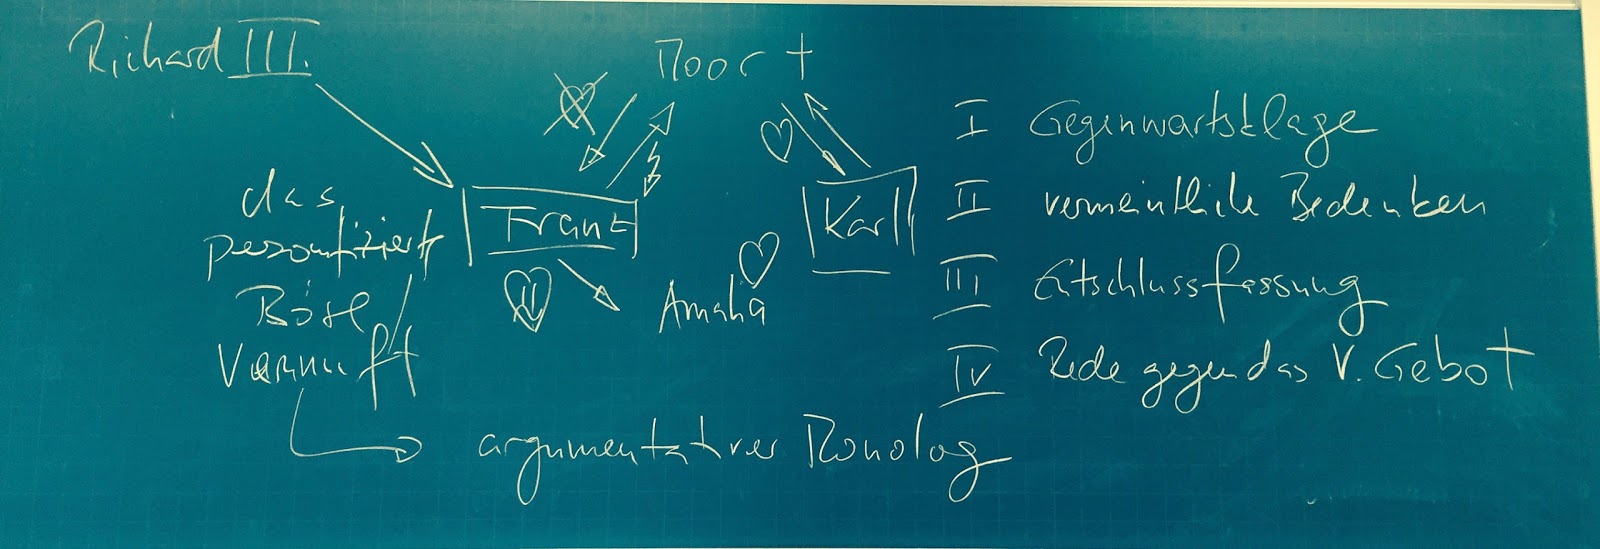 Richard III.
Moor †
Franz
Karl
Amalia
das
personifiziert
Böse
Vernunft
argumentativer Monolog
I Gegenwartsklage
II vermeintliche Bedenken
III Entschlussfassung
IV Rede gegen das V. Gebot